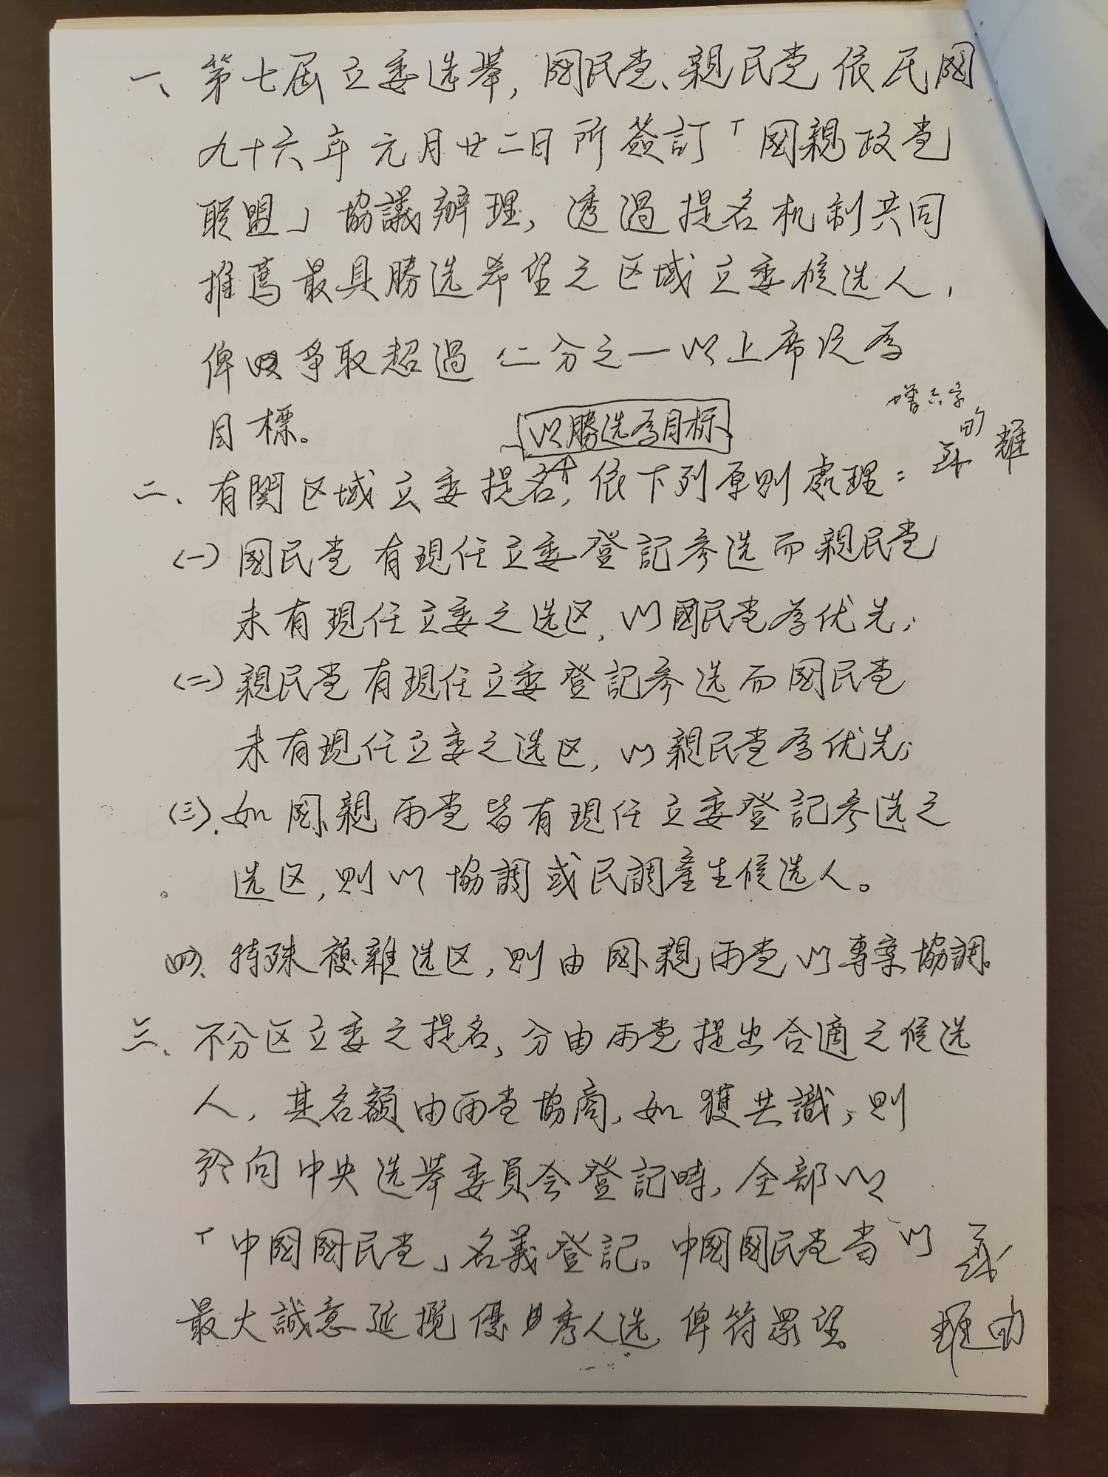 一、第七屆立委选举，國民党、親民党依民國
九十六年元月廿二日所簽訂「國親政党
联盟」協議辦理，透過提名机制共同
推薦最具勝选希望之区域立委候选人，
俾爭取超過二分之一以上席次為
目標。
以勝选為目標
增六字
二、有関区域立委提名，依下列原則處理：
(一)國民党有現任立委登記參选而親民党
未有現任立委之选区，以國民党為优先；
(二)親民党有現任立委登記參选而國民党
未有現任立委之选区，以親民党為优先；
(三)、如國、親両党皆有現任立委登記參选之
选区，則以協調或民調產生候选人。
四、特殊複雜选区，則由國、親両党以專案協調。
三、不分区立委之提名，分由両党提出合適之候选
人，其名額由両党協商，如獲共識，則
於向中央选举委員会登記時，全部以
「中國國民党」名義登記。中國國民党当以
最大誠意延攬優秀人选，俾符眾望。